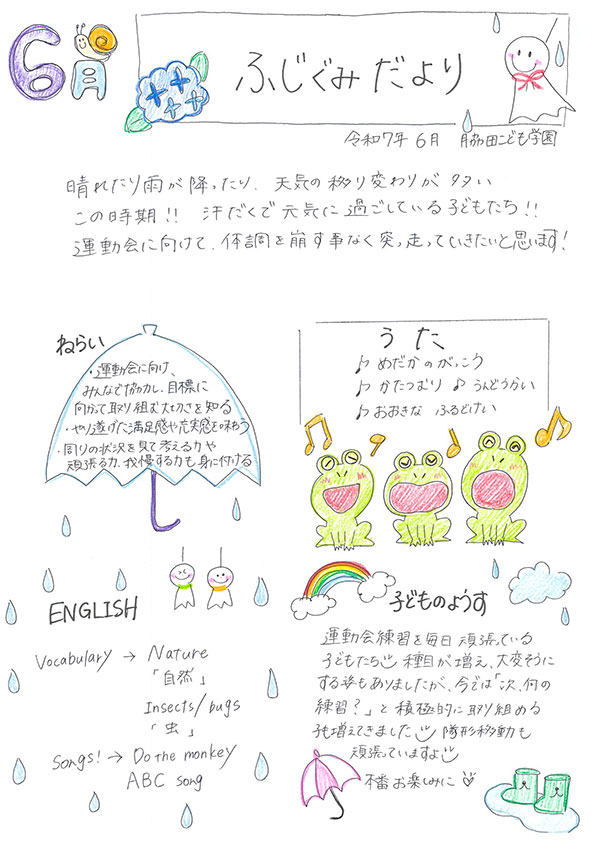 6月
ふじぐみだより
令和7年 6月 脇田こども学園
晴れたり雨が降ったり、天気の移り変わりが多い
この時期!! 汗だくで元気に過ごしている子どもたち!!
運動会に向けて、体調を崩す事なく突っ走っていきたいと思います!
ねらい
・運動会に向け、
みんなで協力し、目標に
向かって取り組む大切さを知る
・やり遂げた満足感や充実感を味わう
・周りの状況を見て考える力や
頑張る力、我慢する力も身に付ける
うた
♪ めだかのがっこう
♪ かたつむり ♪ うんどうかい
♪ おおきな ふるどけい
ENGLISH
Vocabulary → Nature
「自然」
Insects/bugs
「虫」
Songs! → Do the monkey
ABC song
子どものようす
運動会練習を毎日頑張っている
子どもたち 種目が増え、大変そうに
する姿もありましたが、今では「次、何の
練習?」と積極的に取り組める
子も増えてきました 隊形移動も
頑張っていますよ
本番お楽しみに♡